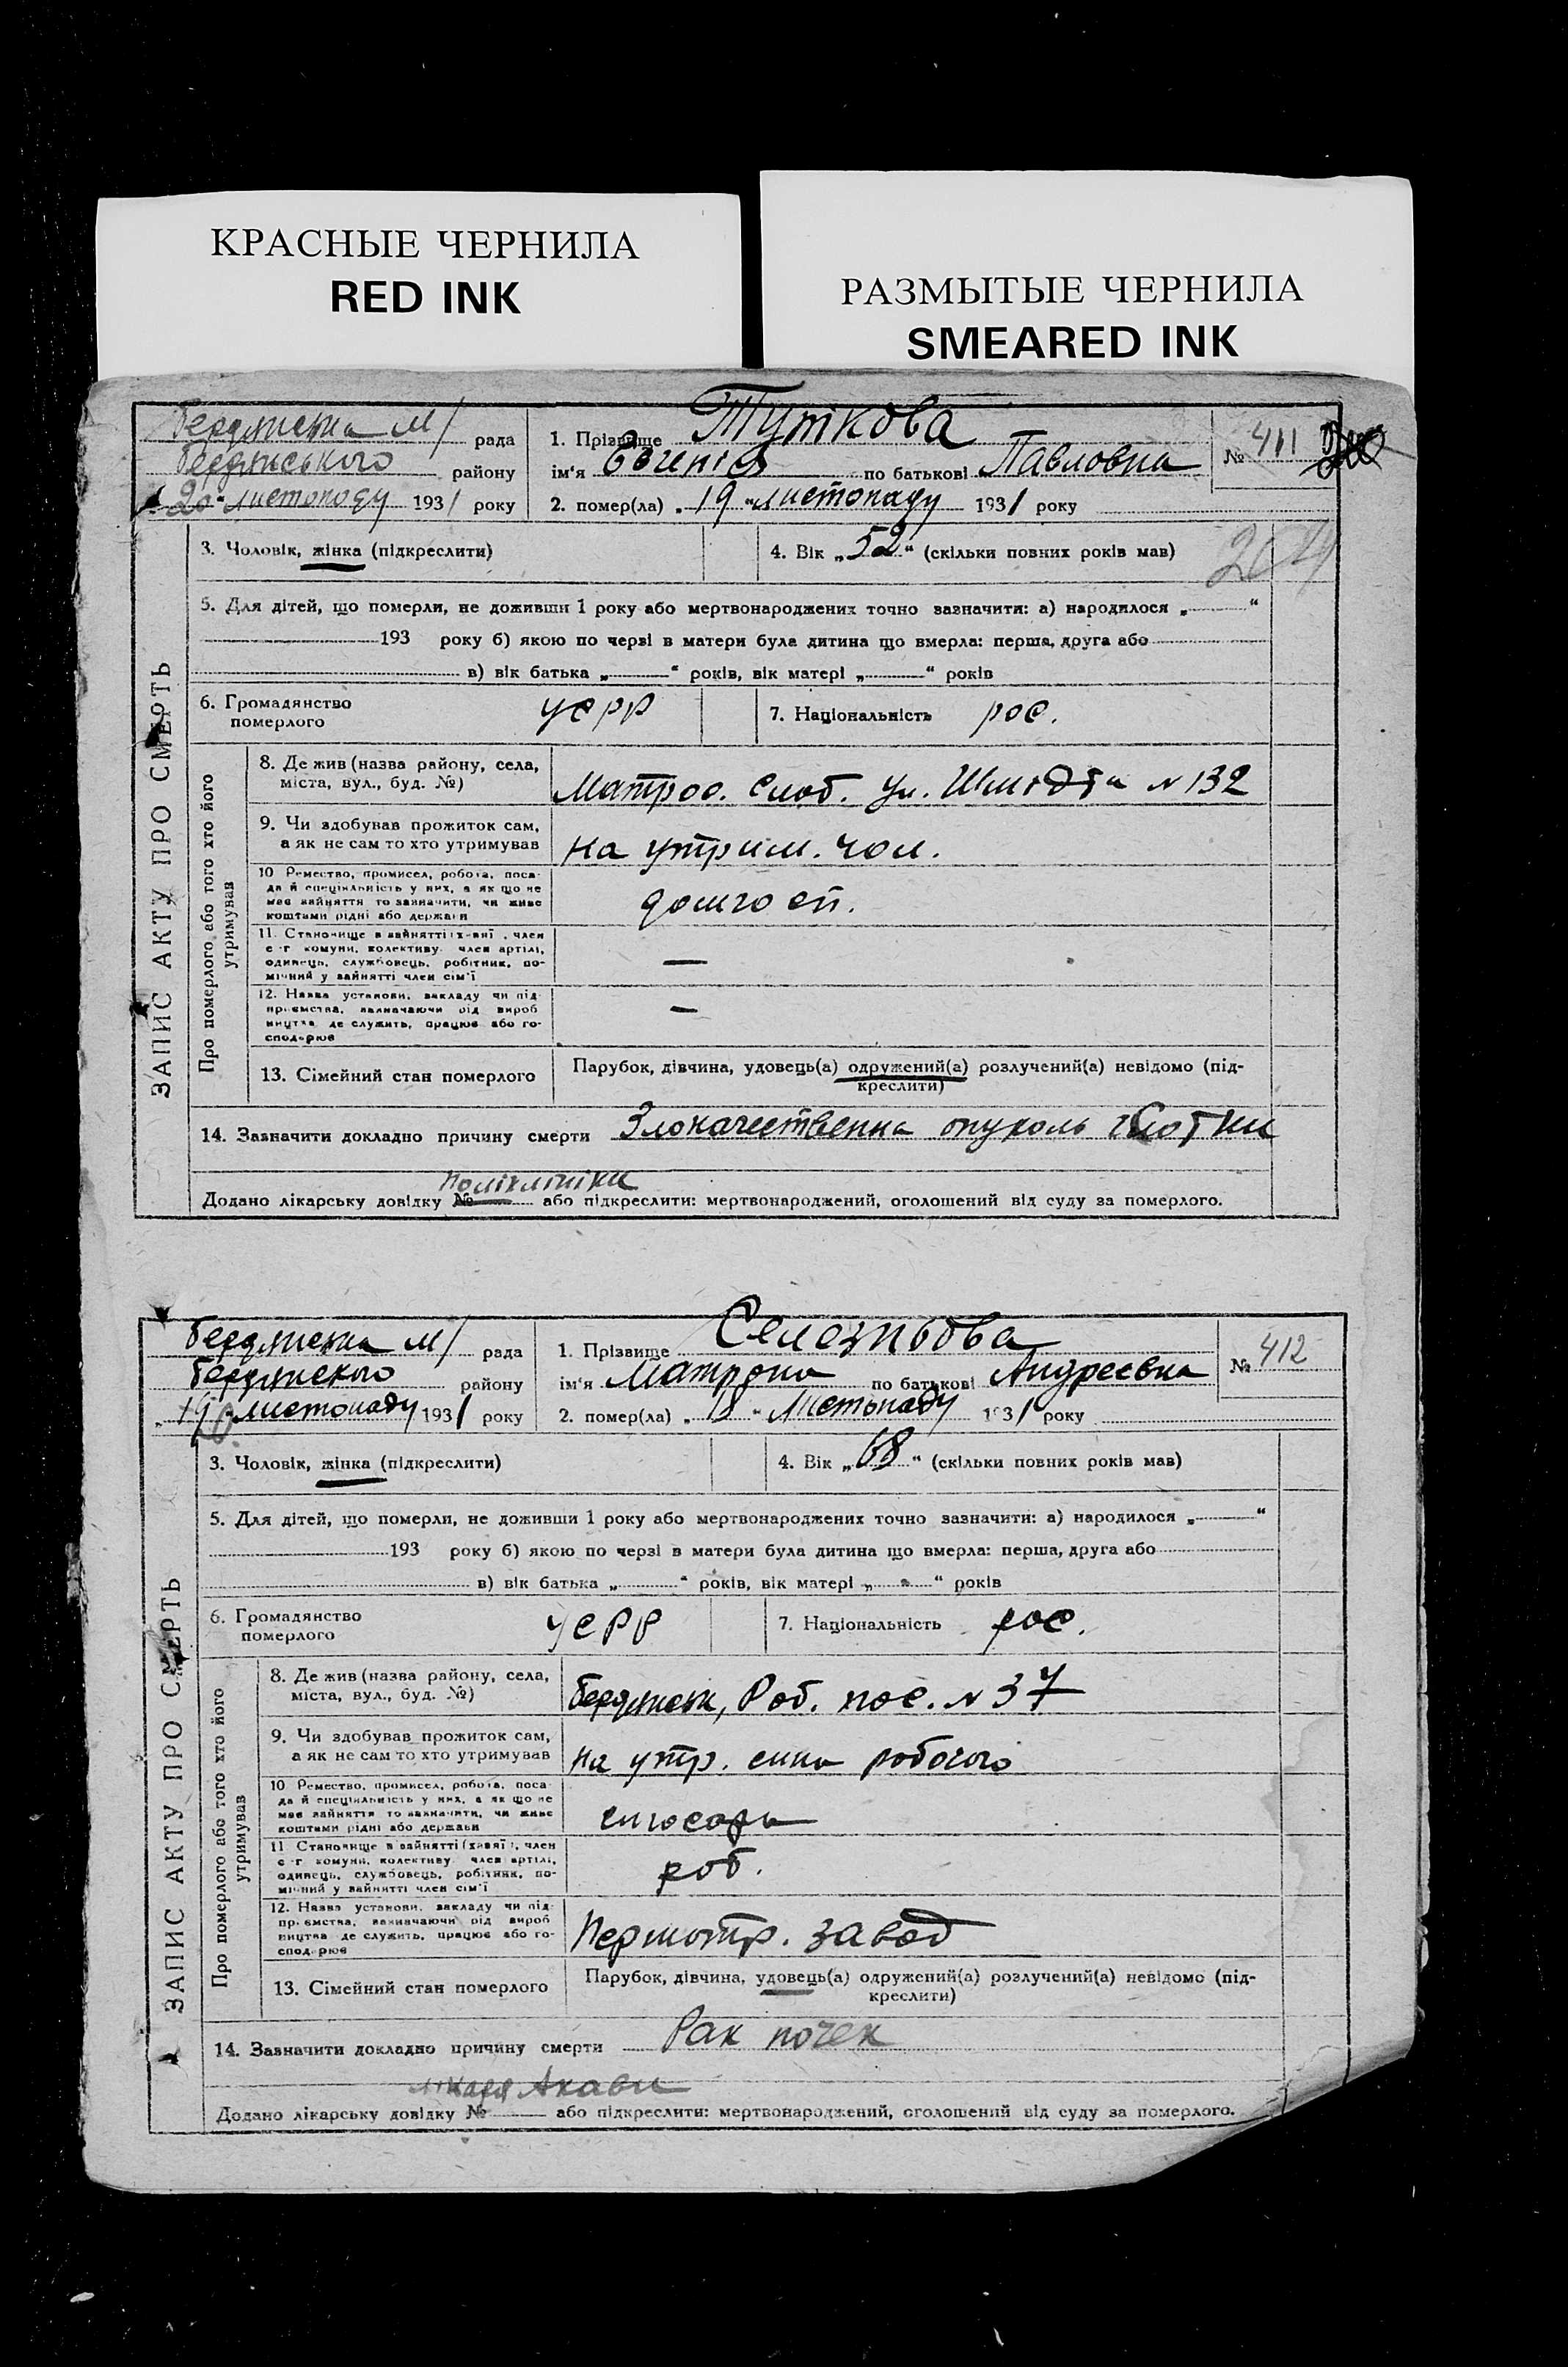 КРАСНЫЕ ЧЕРНИЛА
RED INK
РАЗМЫТЫЕ ЧЕРНИЛА
SMEARED INK
ЗАПИС АКТУ ПРО СМЕРТЬ
Бердянська м/ рада
Бердянського району
„20“ листопаду 1931 року
1. Прізвище Тутікова
ім'я Євгенія по батькові Павловна
2. помер(ла) „19“ листопаду 1931 року
№ 411
3. Чоловік, жінка (підкреслити)
4. Вік „52“ (скільки повних років мав)
5. Для дітей, що померли, не доживши 1 року або мертвонароджених точно зазначити: а) народилося „ “
193 року б) якою по черзі в матери була дитина що вмерла: перша, друга або
в) вік батька „ “ років, вік матері „ “ років
6. Громадянство
померлого
УСРР
7. Національність рос.
Про померлого або того хто його
утримував
8. Де жив (назва району, села,
міста, вул., буд. №)
Матрос. слоб. ул. Шмідта № 132
9. Чи здобував прожиток сам,
а як не сам то хто утримував
на утрим. чол.
10 Ремество, промисел, робота, поса-
да й спеціяльність у них, а як що не
має зайняття то зазначити, чи живе
коштами рідні або держави
домгосп.
11. Становище в зайнятті (хазяї), член
с-г комуни, колективу, член артілі,
одинець, службовець, робітник, по-
мічний у зайнятті член сім'ї
—
12. Назва установи, закладу чи під-
приємства, зазначаючи рід вироб
ництва де служить, працює або го-
сподарює
—
13. Сімейний стан померлого
Парубок, дівчина, удовець(а) одружений(а) розлучений(а) невідомо (під-
креслити)
14. Зазначити докладно причину смерти Злокачественна опухоль глотки
поліклініки
Додано лікарську довідку № або підкреслити: мертвонароджений, оголошений від суду за померлого.
ЗАПИС АКТУ ПРО СМЕРТЬ
Бердянська м/ рада
Бердянського району
„19“ листопаду 1931 року
1. Прізвище Селезньова
ім'я Матрона по батькові Андреевна
2. помер(ла) „18“ Листопаду 1931 року
№ 412
3. Чоловік, жінка (підкреслити)
4. Вік „68“ (скільки повних років мав)
5. Для дітей, що померли, не доживши 1 року або мертвонароджених точно зазначити: а) народилося „ “
193 року б) якою по черзі в матери була дитина що вмерла: перша, друга або
в) вік батька „ “ років, вік матері „ “ років
6. Громадянство
померлого
УСРР
7. Національність рос.
Про померлого або того хто його
утримував
8. Де жив (назва району, села,
міста, вул., буд. №)
Бердянськ, Роб. пос. № 37
9. Чи здобував прожиток сам,
а як не сам то хто утримував
на утр. сина робочого
10 Ремество, промисел, робота, поса-
да й спеціяльність у них, а як що не
має зайняття то зазначити, чи живе
коштами рідні або держави
слюсарь
11 Становище в зайнятті (хазяї), член
с-г комуни, колективу член артілі,
одинець, службовець, робітник, по-
мічний у зайнятті член сім'ї
роб.
12. Назва установи, закладу чи під-
приємства, зазначаючи рід вироб
ництва де служить, працює або го-
сподарює
Першотр. завод
13. Сімейний стан померлого
Парубок, дівчина, удовець(а) одружений(а) розлучений(а) невідомо (під-
креслити)
14. Зазначити докладно причину смерти Рак почек
лікаря
Додано лікарську довідку № або підкреслити: мертвонароджений, оголошений від суду за померлого.